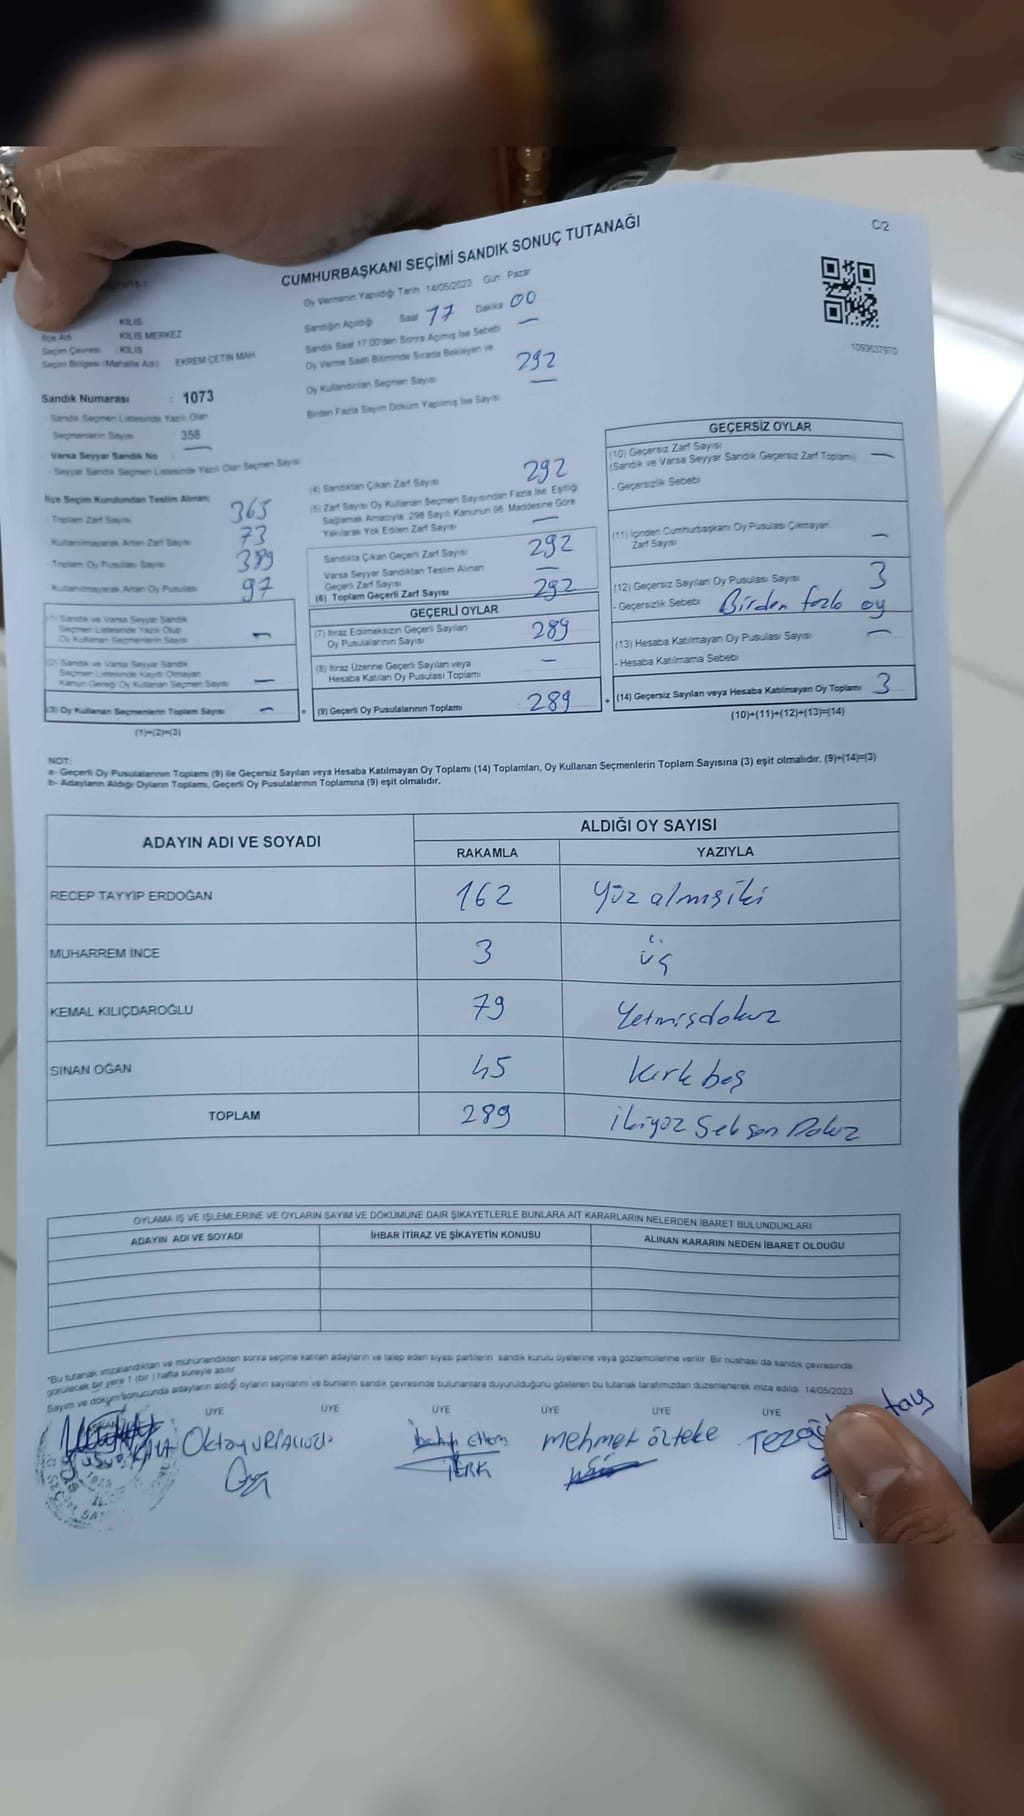 C/2
CUMHURBAŞKANI SEÇİMİ SANDIK SONUÇ TUTANAĞI
Oy Vermenin Yapıldığı Tarih 14/05/2023 Gün Pazar
KİLİS
İlçe Adı KİLİS MERKEZ
Seçim Çevresi : KİLİS
Seçim Bölgesi (Mahalle Adı) EKREM ÇETİN MAH
Sandık Numarası : 1073
Sandık Seçmen Listesinde Yazılı Olan
Seçmenlerin Sayısı 358
Varsa Seyyar Sandık No : —
- Seyyar Sandık Seçmen Listesinde Yazılı Olan Seçmen Sayısı
Sandığın Açıldığı Saat 17 Dakika 00
Sandık Saat 17:00'den Sonra Açılmış İse Sebebi —
Oy Verme Saati Bitiminde Sırada Bekleyen ve
Oy Kullandırılan Seçmen Sayısı 292
Birden Fazla Sayım Döküm Yapılmış İse Sayısı —
1093637970
İlçe Seçim Kurulundan Teslim Alınan:
- Toplam Zarf Sayısı 365
Kullanılmayarak Artan Zarf Sayısı 73
- Toplam Oy Pusulası Sayısı 389
Kullanılmayarak Artan Oy Pusulası 97
(1) Sandık ve Varsa Seyyar Sandık
Seçmen Listesinde Yazılı Olup
Oy Kullanan Seçmenlerin Sayısı —
(2) Sandık ve Varsa Seyyar Sandık
Seçmen Listesinde Kayıtlı Olmayan
Kanun Gereği Oy Kullanan Seçmen Sayısı —
(3) Oy Kullanan Seçmenlerin Toplam Sayısı —
(1)+(2)=(3)
(4) Sandıktan Çıkan Zarf Sayısı 292
(5) Zarf Sayısı Oy Kullanan Seçmen Sayısından Fazla İse, Eşitliği
Sağlamak Amacıyla, 298 Sayılı Kanunun 98. Maddesine Göre
Yakılarak Yok Edilen Zarf Sayısı —
Sandıkta Çıkan Geçerli Zarf Sayısı 292
Varsa Seyyar Sandıktan Teslim Alınan
Geçerli Zarf Sayısı —
(6) Toplam Geçerli Zarf Sayısı 292
GEÇERLİ OYLAR
(7) İtiraz Edilmeksizin Geçerli Sayılan
Oy Pusulalarının Sayısı 289
(8) İtiraz Üzerine Geçerli Sayılan veya
Hesaba Katılan Oy Pusulası Toplamı —
= (9) Geçerli Oy Pusulalarının Toplamı 289
GEÇERSİZ OYLAR
(10) Geçersiz Zarf Sayısı
(Sandık ve Varsa Seyyar Sandık Geçersiz Zarf Toplamı) —
- Geçersizlik Sebebi
(11) İçinden Cumhurbaşkanı Oy Pusulası Çıkmayan
Zarf Sayısı —
(12) Geçersiz Sayılan Oy Pusulası Sayısı 3
- Geçersizlik Sebebi Birden fazla oy
(13) Hesaba Katılmayan Oy Pusulası Sayısı —
- Hesaba Katılmama Sebebi
+ (14) Geçersiz Sayılan veya Hesaba Katılmayan Oy Toplamı 3
(10)+(11)+(12)+(13)=(14)
NOT:
a- Geçerli Oy Pusulalarının Toplamı (9) ile Geçersiz Sayılan veya Hesaba Katılmayan Oy Toplamı (14) Toplamları, Oy Kullanan Seçmenlerin Toplam Sayısına (3) eşit olmalıdır. (9)+(14)=(3)
b- Adayların Aldığı Oyların Toplamı, Geçerli Oy Pusulalarının Toplamına (9) eşit olmalıdır.
ADAYIN ADI VE SOYADI ALDIĞI OY SAYISI
RAKAMLA YAZIYLA
RECEP TAYYİP ERDOĞAN 162 Yüz almışiki
MUHARREM İNCE 3 üç
KEMAL KILIÇDAROĞLU 79 Yetmişdokuz
SİNAN OĞAN 45 Kırk beş
TOPLAM 289 ikiyüz Seksen Dokuz
OYLAMA İŞ VE İŞLEMLERİNE VE OYLARIN SAYIM VE DÖKÜMÜNE DAİR ŞİKAYETLERLE BUNLARA AİT KARARLARIN NELERDEN İBARET BULUNDUKLARI
ADAYIN ADI VE SOYADI İHBAR İTİRAZ VE ŞİKAYETİN KONUSU ALINAN KARARIN NEDEN İBARET OLDUĞU
*Bu tutanak imzalandıktan ve mühürlendikten sonra seçime katılan adayların ve talep eden siyasi partilerin sandık kurulu üyelerine veya gözlemcilerine verilir. Bir nüshası da sandık çevresinde
görülecek bir yere 1 (bir) hafta süreyle asılır.
Sayım ve döküm sonucunda adayların aldığı oyların sayılarını ve bunların sandık çevresinde bulunanlara duyurulduğunu gösteren bu tutanak tarafımızdan düzenlenerek imza edildi. 14/05/2023
ÜYE ÜYE ÜYE ÜYE ÜYE ÜYE
Oktay
mehmet özteke